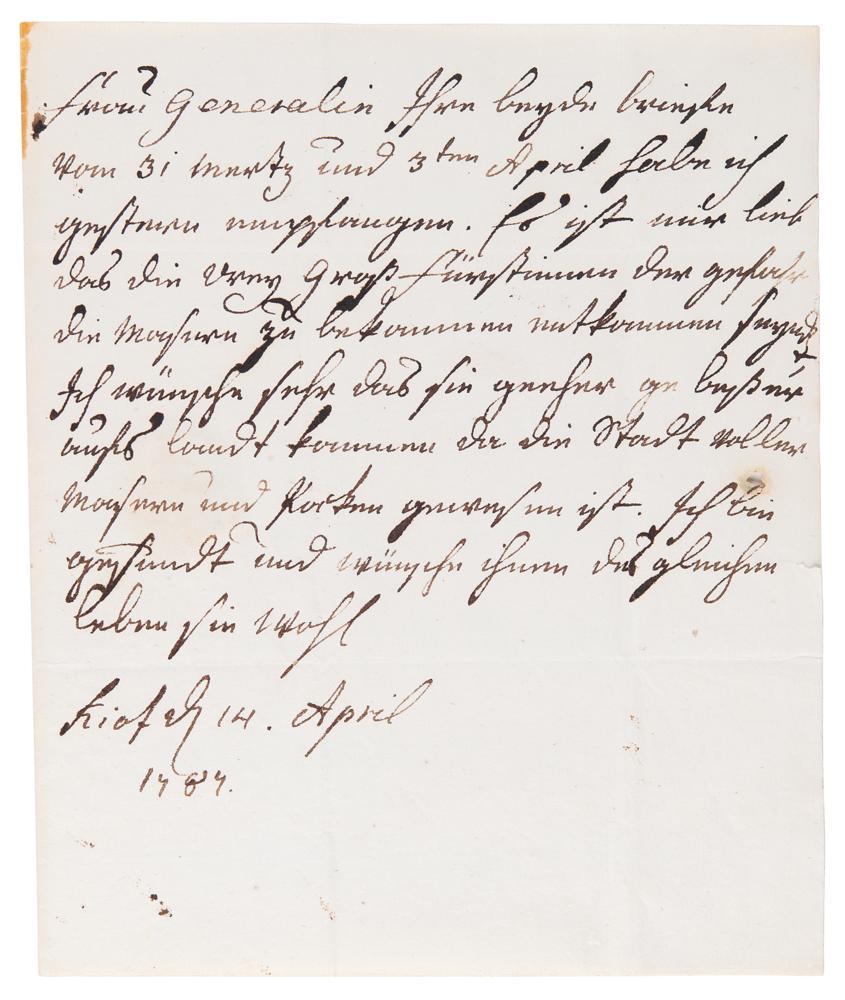 Frau Generalin Ihre beyde brieffe
vom 31 Mertz und 3ten April habe ich
gestern empfangen. Es ist mir lieb
das die drey Groß-Fürstinnen der gefahr
die Masern zu bekommen entkommen seynd
Ich wünsche sehr das sie beßer
aufs landt kommen da die Stadt voller
Masern und Pocken gewesen ist. Ich bin
gesundt und wünsche ihnen desgleichen
leben sie wohl
Kiof d 14. April
1787.